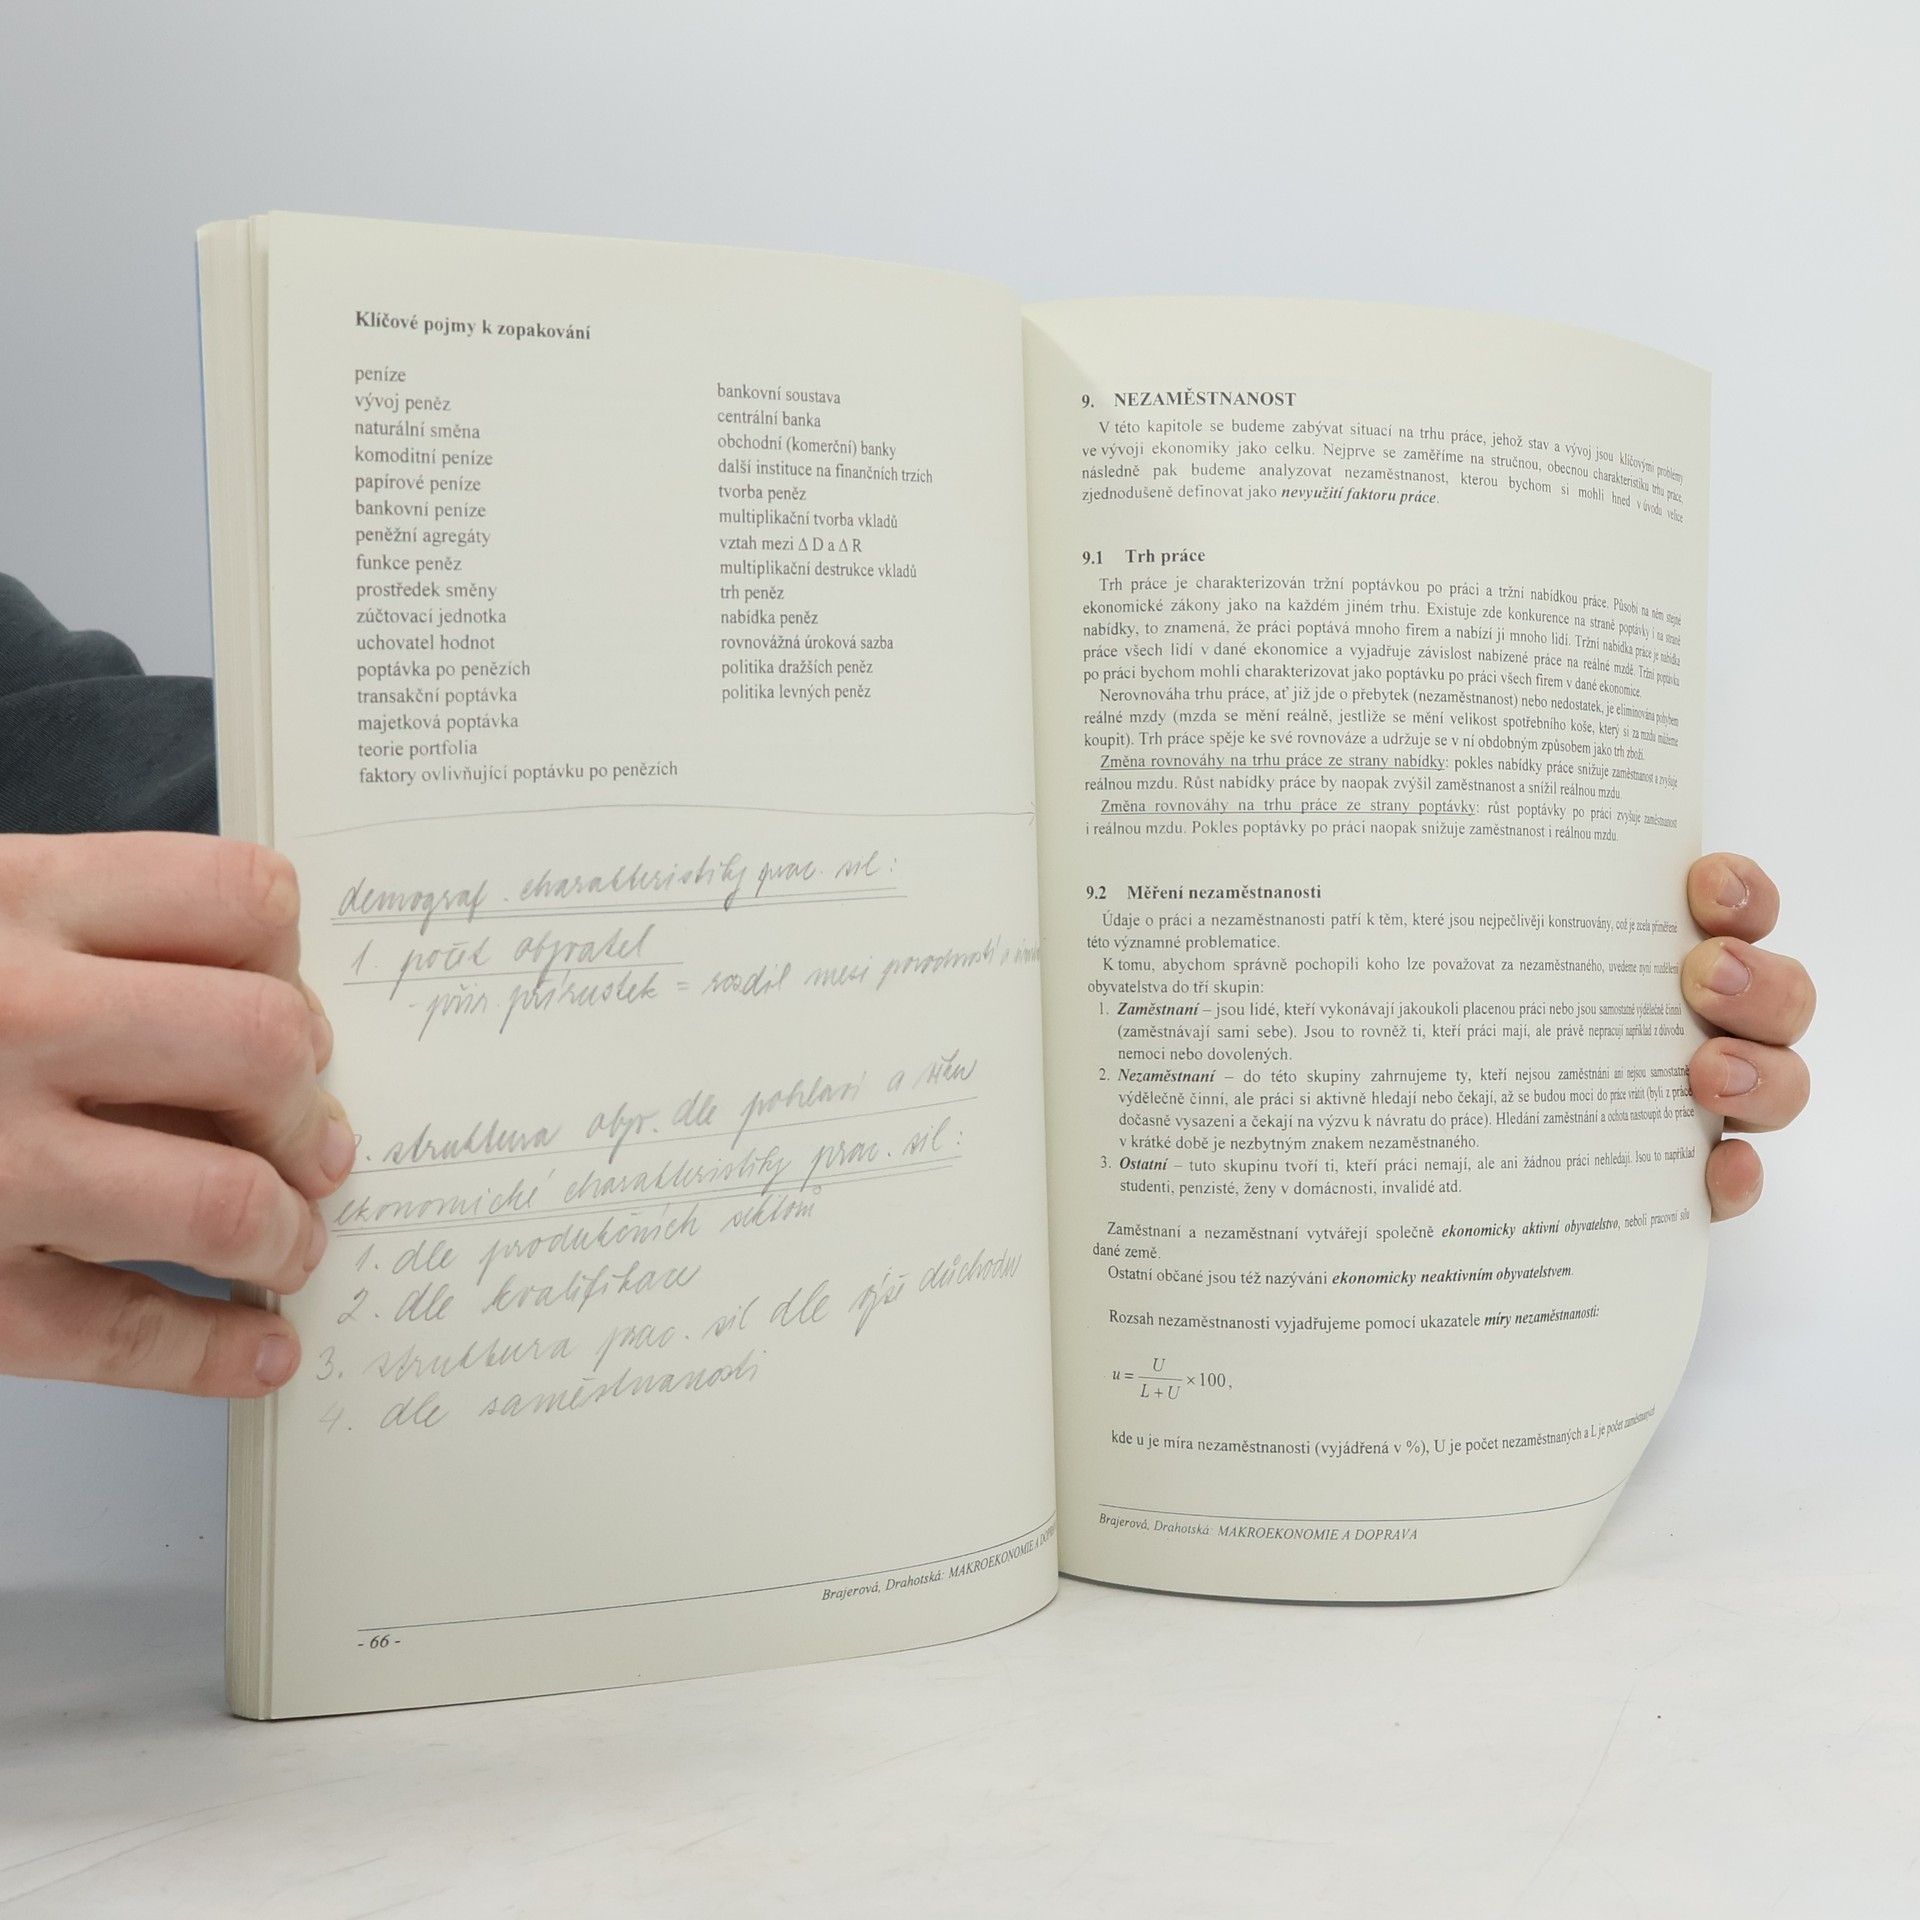 Klíčové pojmy k zopakování
peníze
vývoj peněz
naturální směna
komoditní peníze
papírové peníze
bankovní peníze
peněžní agregáty
funkce peněz
prostředek směny
zúčtovací jednotka
uchovatel hodnot
poptávka po penězích
transakční poptávka
majetková poptávka
teorie portfolia
faktory ovlivňující poptávku po penězích
bankovní soustava
centrální banka
obchodní (komerční) banky
další instituce na finančních trzích
tvorba peněz
multiplikační tvorba vkladů
vztah mezi Δ D a Δ R
multiplikační destrukce vkladů
trh peněz
nabídka peněz
rovnovážná úroková sazba
politika dražších peněz
politika levných peněz
demograf. charakteristiky prac. sil:
1. počet obyvatel
- přir. přírustek = rozdíl mezi porodností a
. struktura obyv. dle pohlaví a věku
ekonomické charakteristiky prac. sil:
1. dle produkčních sektorů
2. dle kvalifikace
3. struktura prac. sil dle výše důchodu
4. dle zaměstnanosti
Brajerová, Drahotská: MAKROEKONOMIE A
- 66 -
9. NEZAMĚSTNANOST
V této kapitole se budeme zabývat situací na trhu práce, jehož stav a vývoj jsou klíčovými problémy
ve vývoji ekonomiky jako celku. Nejprve se zaměříme na stručnou, obecnou charakteristiku trhu práce,
následně pak budeme analyzovat nezaměstnanost, kterou bychom si mohli hned v úvodu velice
zjednodušeně definovat jako nevyužití faktoru práce.
9.1 Trh práce
Trh práce je charakterizován tržní poptávkou po práci a tržní nabídkou práce. Působí na něm stejné
ekonomické zákony jako na každém jiném trhu. Existuje zde konkurence na straně poptávky i na straně
nabídky, to znamená, že práci poptává mnoho firem a nabízí ji mnoho lidí. Tržní nabídka práce je nabídka
práce všech lidí v dané ekonomice a vyjadřuje závislost nabízené práce na reálné mzdě. Tržní poptávku
po práci bychom mohli charakterizovat jako poptávku po práci všech firem v dané ekonomice.
Nerovnováha trhu práce, ať již jde o přebytek (nezaměstnanost) nebo nedostatek, je eliminována pohybem
reálné mzdy (mzda se mění reálně, jestliže se mění velikost spotřebního koše, který si za mzdu můžeme
koupit). Trh práce spěje ke své rovnováze a udržuje se v ní obdobným způsobem jako trh zboží.
Změna rovnováhy na trhu práce ze strany nabídky: pokles nabídky práce snižuje zaměstnanost a zvyšuje
reálnou mzdu. Růst nabídky práce by naopak zvýšil zaměstnanost a snížil reálnou mzdu.
Změna rovnováhy na trhu práce ze strany poptávky: růst poptávky po práci zvyšuje zaměstnanost
i reálnou mzdu. Pokles poptávky po práci naopak snižuje zaměstnanost i reálnou mzdu.
9.2 Měření nezaměstnanosti
Údaje o práci a nezaměstnanosti patří k těm, které jsou nejpečlivěji konstruovány, což je zcela přiměřené
této významné problematice.
K tomu, abychom správně pochopili koho lze považovat za nezaměstnaného, uvedeme nyní rozdělení
obyvatelstva do tří skupin:
1. Zaměstnaní – jsou lidé, kteří vykonávají jakoukoli placenou práci nebo jsou samostatně výdělečně činní
(zaměstnávají sami sebe). Jsou to rovněž ti, kteří práci mají, ale právě nepracují například z důvodu
nemoci nebo dovolených.
2. Nezaměstnaní – do této skupiny zahrnujeme ty, kteří nejsou zaměstnáni ani nejsou samostatně
výdělečně činní, ale práci si aktivně hledají nebo čekají, až se budou moci do práce vrátit (byli z práce
dočasně vysazeni a čekají na výzvu k návratu do práce). Hledání zaměstnání a ochota nastoupit do práce
v krátké době je nezbytným znakem nezaměstnaného.
3. Ostatní – tuto skupinu tvoří ti, kteří práci nemají, ale ani žádnou práci nehledají. Jsou to například
studenti, penzisté, ženy v domácnosti, invalidé atd.
Zaměstnaní a nezaměstnaní vytvářejí společně ekonomicky aktivní obyvatelstvo, neboli pracovní sílu
dané země.
Ostatní občané jsou též nazýváni ekonomicky neaktivním obyvatelstvem.
Rozsah nezaměstnanosti vyjadřujeme pomocí ukazatele míry nezaměstnanosti:
u = U / (L + U) × 100,
kde u je míra nezaměstnanosti (vyjádřená v %), U je počet nezaměstnaných a L je počet zaměstnaných
Brajerová, Drahotská: MAKROEKONOMIE A DOPRAVA